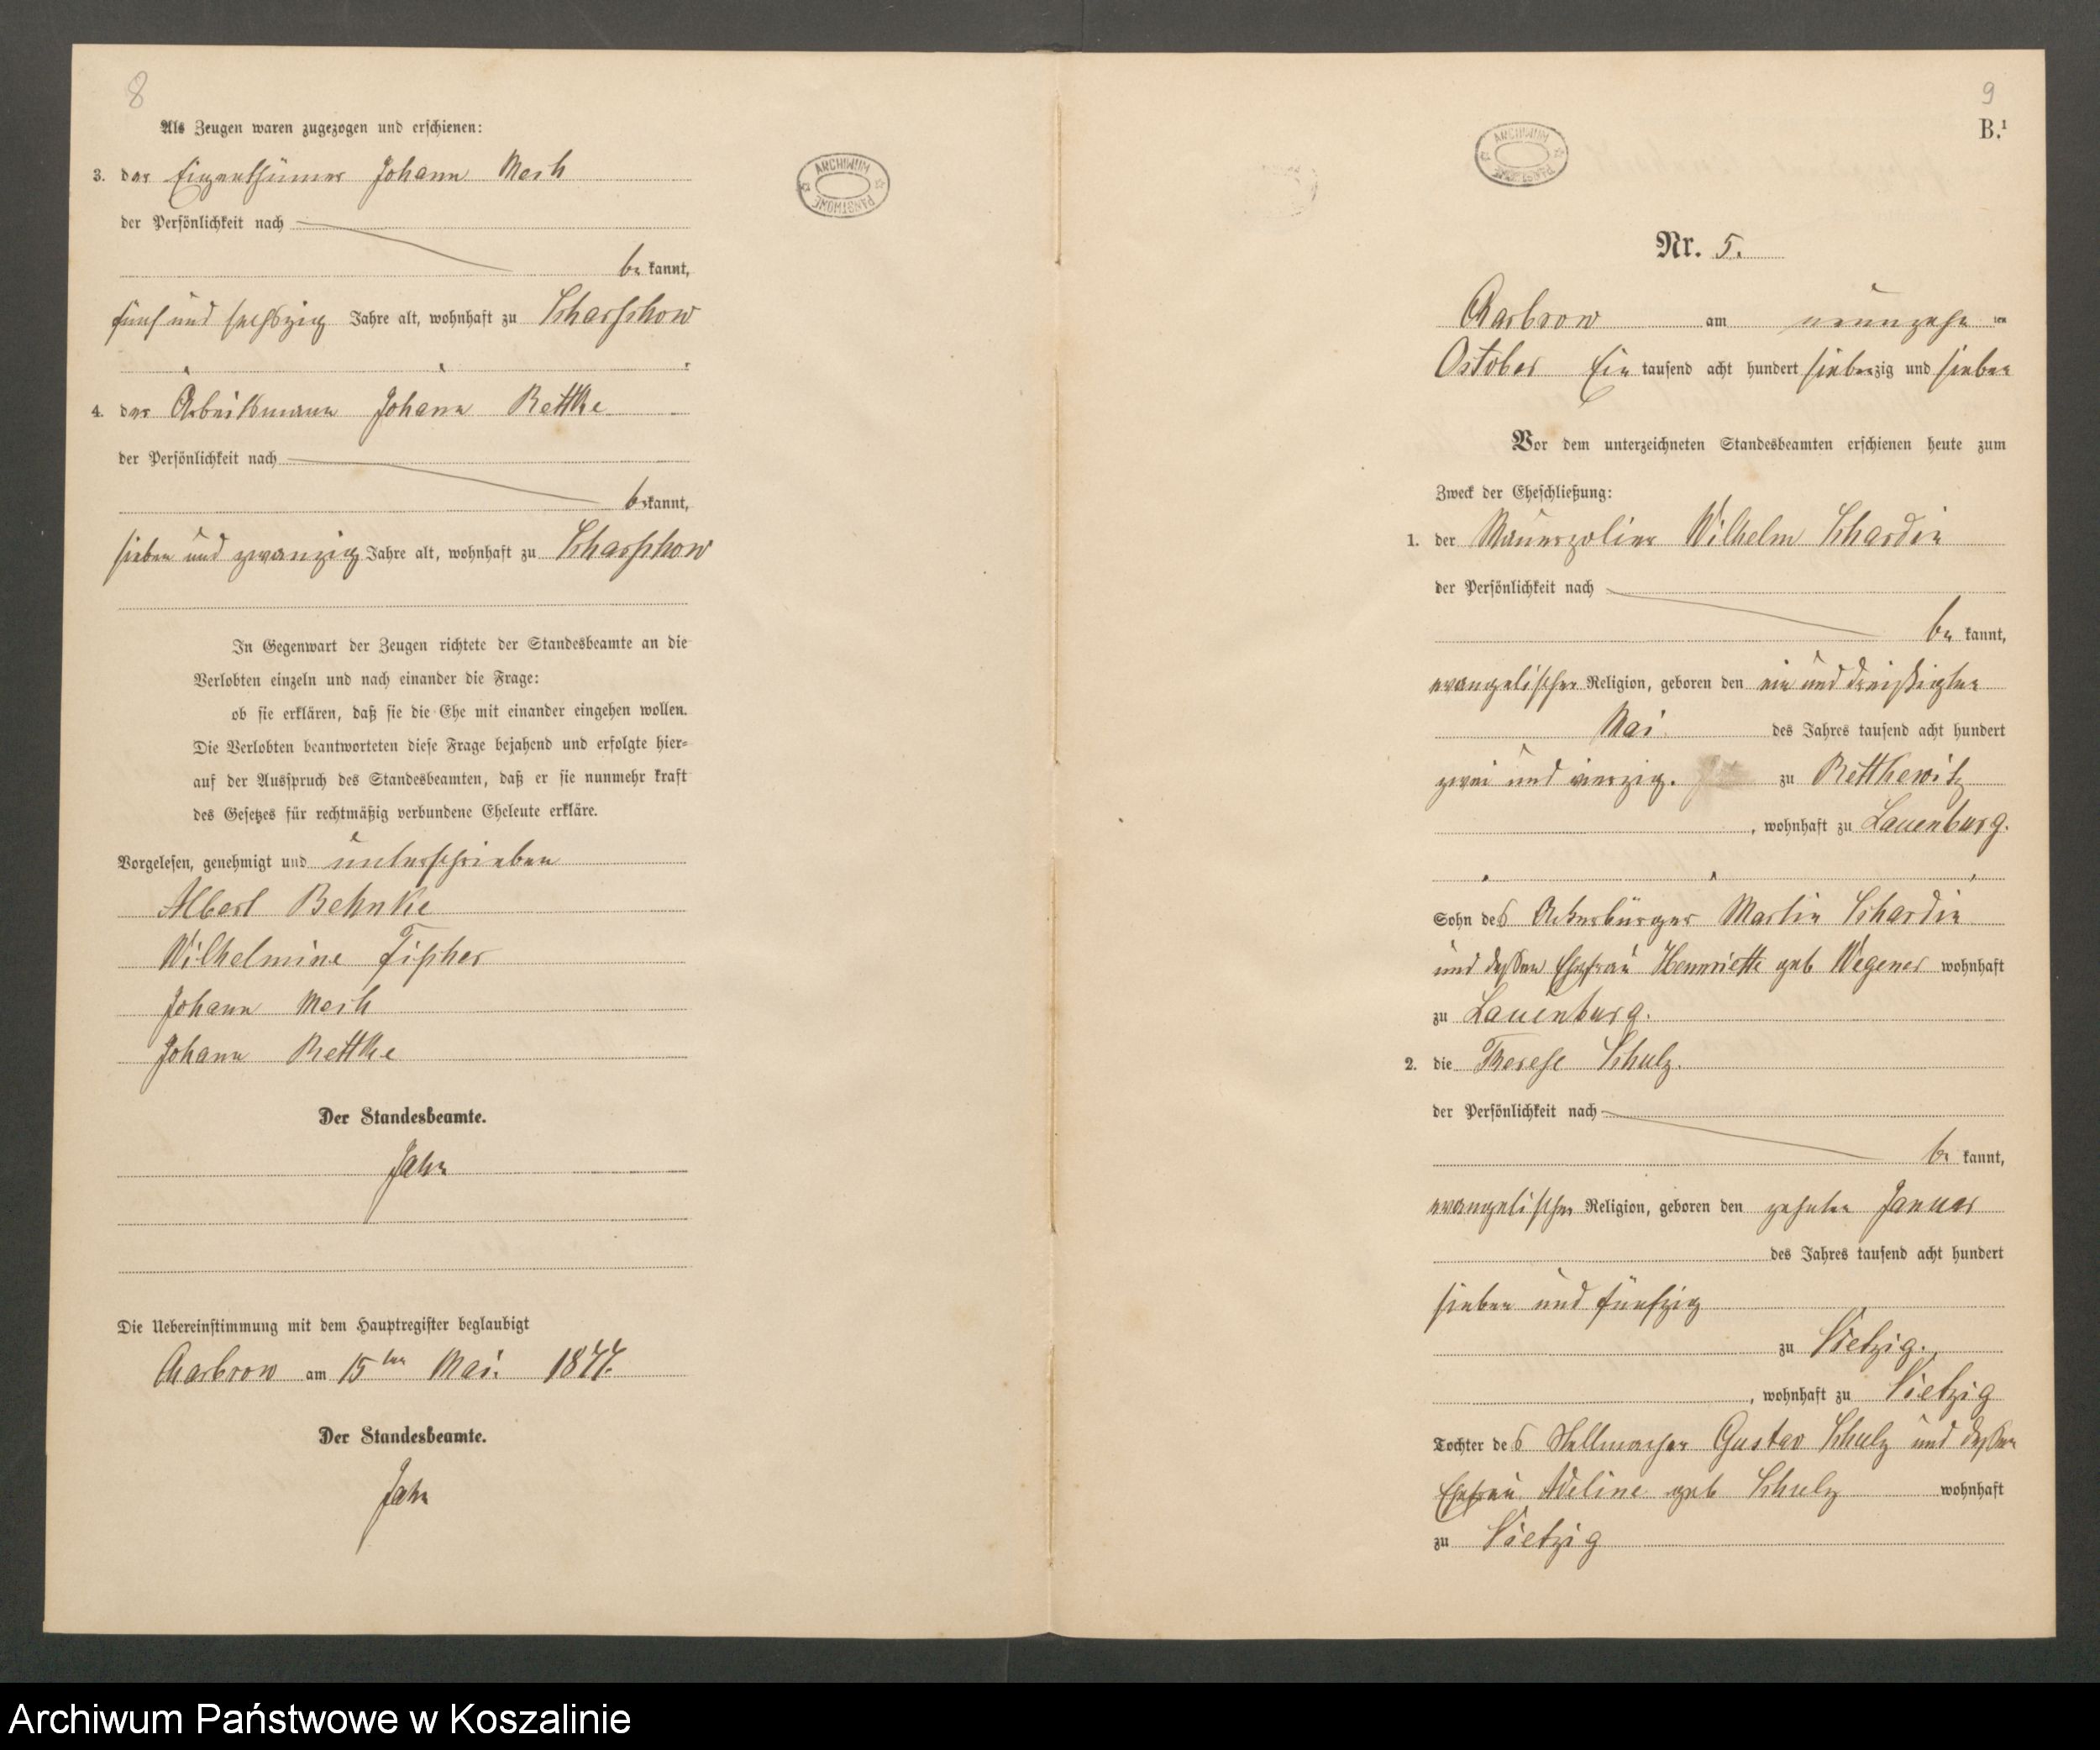 8
Als Zeugen waren zugezogen und erschienen:
3. der Eigenthümer Johann Mesh
der Persönlichkeit nach
be kannt,
fünf und sechszig Jahre alt, wohnhaft zu Scharschow
4. der Arbeitsmann Johann Rettke
der Persönlichkeit nach
be kannt,
sieben und zwanzig Jahre alt, wohnhaft zu Scharschow
In Gegenwart der Zeugen richtete der Standesbeamte an die
Verlobten einzeln und nach einander die Frage:
ob sie erklären, daß sie die Ehe mit einander eingehen wollen.
Die Verlobten beantworteten diese Frage bejahend und erfolgte hier-
auf der Ausspruch des Standesbeamten, daß er sie nunmehr kraft
des Gesetzes für rechtmäßig verbundene Eheleute erkläre.
Vorgelesen, genehmigt und unterschrieben
Albert Behnke
Wilhelmine Fischer
Johann Mesh
Johann Rettke
Der Standesbeamte.
Jahn
Die Uebereinstimmung mit dem Hauptregister beglaubigt
Charbrow am 15ten Mai. 1877.
Der Standesbeamte.
Jahn
ARCHIWUM PAŃSTWOWE
ARCHIWUM
9
B.¹
Nr. 5.
Charbrow am neunzehn ten
October Ein tausend acht hundert siebenzig und sieben
Vor dem unterzeichneten Standesbeamten erschienen heute zum
Zweck der Eheschließung:
1. der Maurerpolier Wilhelm Schardin
der Persönlichkeit nach
be kannt,
evangelischer Religion, geboren den ein und dreißigten
Mai. des Jahres tausend acht hundert
zwei und vierzig. zu Rettkewitz
, wohnhaft zu Lauenburg.
Sohn des Ackerbürger Martin Schardin
und dessen Ehefrau Hennriette geb Wegener wohnhaft
zu Lauenburg.
2. die Therese Schulz.
der Persönlichkeit nach
be kannt,
evangelischer Religion, geboren den zehnten Januar
des Jahres tausend acht hundert
sieben und fünfzig
zu Vietzig.
, wohnhaft zu Vietzig
Tochter des Stellmacher Gustav Schulz und dessen
Ehefrau Adeline geb Schulz wohnhaft
zu Vietzig
Archiwum Państwowe w Koszalinie